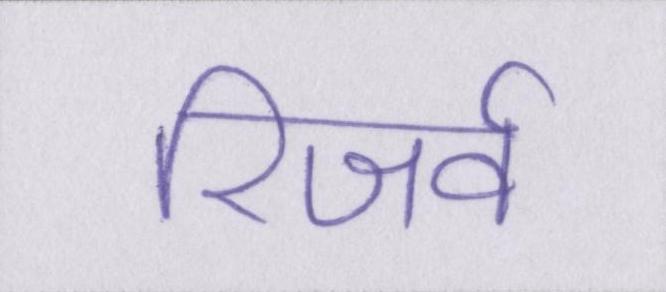 रिजर्व